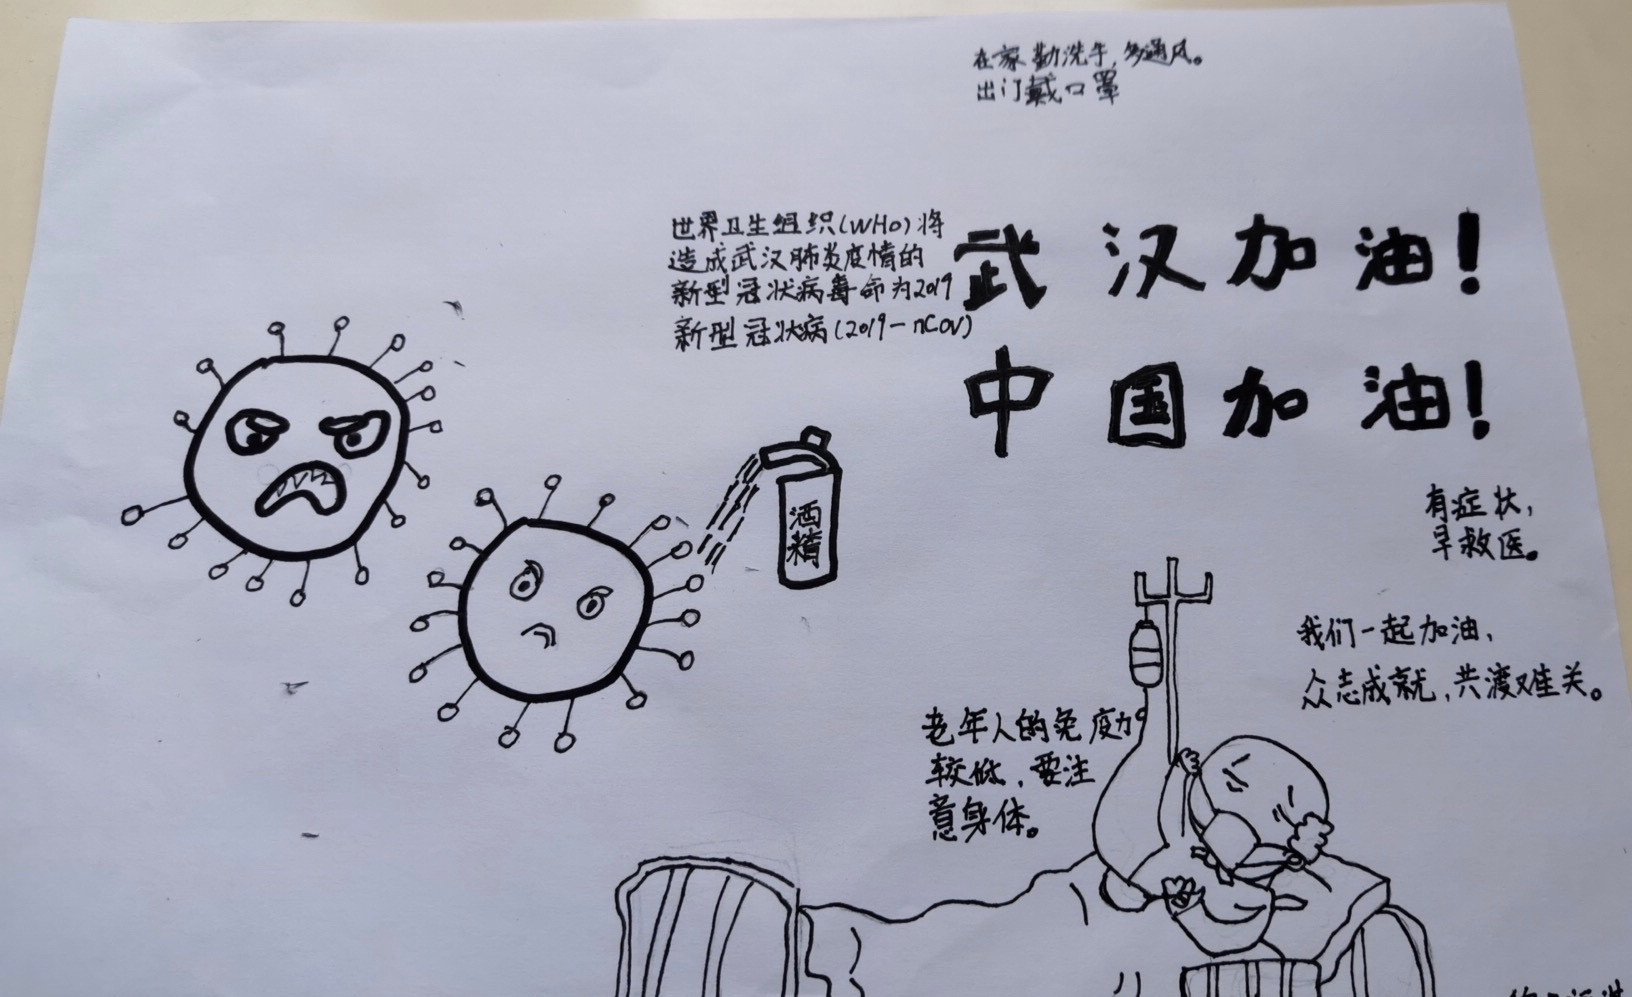 在家勤洗手,多通风。
出门戴口罩
世界卫生组织(WHO)将
造成武汉肺炎疫情的
新型冠状病毒命为2019
新型冠状病(2019-nCoV)
武汉加油!
中国加油!
酒精
有症状,
早救医。
我们一起加油,
众志成就,共渡难关。
老年人的免疫力
较低,要注
意身体。